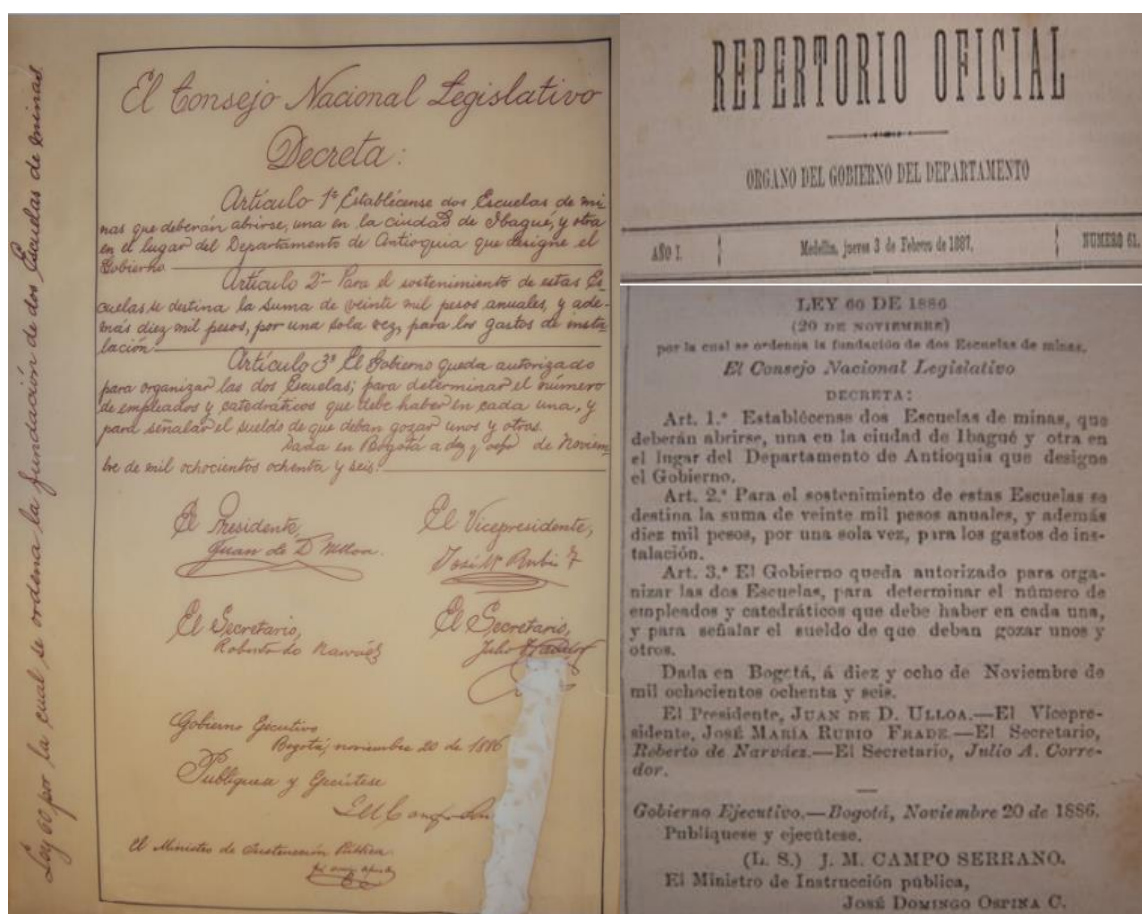 Ley 60 por la cual se ordena la fundación de dos Escuelas de minas.
El Consejo Nacional Legislativo
Decreta:
Artículo 1º Establécense dos Escuelas de mi
nas que deberán abrirse, una en la ciudad de Ibagué, y otra
en el lugar del Departamento de Antioquia que designe el
Gobierno.
Artículo 2º Para el sostenimiento de estas Es
cuelas se destina la suma de veinte mil pesos anuales, y ade-
más diez mil pesos, por una sola vez, para los gastos de insta-
lación.
Artículo 3º El Gobierno queda autorizado
para organizar las dos Escuelas; para determinar el número
de empleados y catedráticos que debe haber en cada una, y
para señalar el sueldo de que deban gozar unos y otros.
Dada en Bogotá a diez y ocho de Noviem
bre de mil ochocientos ochenta y seis.
El Presidente,
Juan de D. Ulloa.
El Vicepresidente,
José Mª Rubio F
El Secretario,
Roberto de Narváez
El Secretario,
Julio
Gobierno Ejecutivo
Bogotá, noviembre 20 de 1886
Publíquese y Ejecútese
El Ministro de Instrucción Pública
REPERTORIO OFICIAL
ORGANO DEL GOBIERNO DEL DEPARTAMENTO
AÑO I. Medellín, jueves 3 de Febrero de 1887. NUMERO 61.
LEY 60 DE 1886
(20 DE NOVIEMBRE)
por la cual se ordena la fundación de dos Escuelas de minas.
El Consejo Nacional Legislativo
DECRETA:
Art. 1.º Establécense dos Escuelas de minas, que
deberán abrirse, una en la ciudad de Ibagué y otra en
el lugar del Departamento de Antioquia que designe
el Gobierno.
Art. 2.º Para el sostenimiento de estas Escuelas se
destina la suma de veinte mil pesos anuales, y además
diez mil pesos, por una sola vez, para los gastos de ins-
talación.
Art. 3.º El Gobierno queda autorizado para orga-
nizar las dos Escuelas, para determinar el número de
empleados y catedráticos que debe haber en cada una,
y para señalar el sueldo de que deban gozar unos y
otros.
Dada en Bogotá, á diez y ocho de Noviembre de
mil ochocientos ochenta y seis.
El Presidente, JUAN DE D. ULLOA.—El Vicepre-
sidente, JOSÉ MARÍA RUBIO FRADE.—El Secretario,
Roberto de Narváez.—El Secretario, Julio A. Corre-
dor.
Gobierno Ejecutivo.—Bogotá, Noviembre 20 de 1886.
Publíquese y ejecútese.
(L. S.) J. M. CAMPO SERRANO.
El Ministro de Instrucción pública,
JOSÉ DOMINGO OSPINA C.